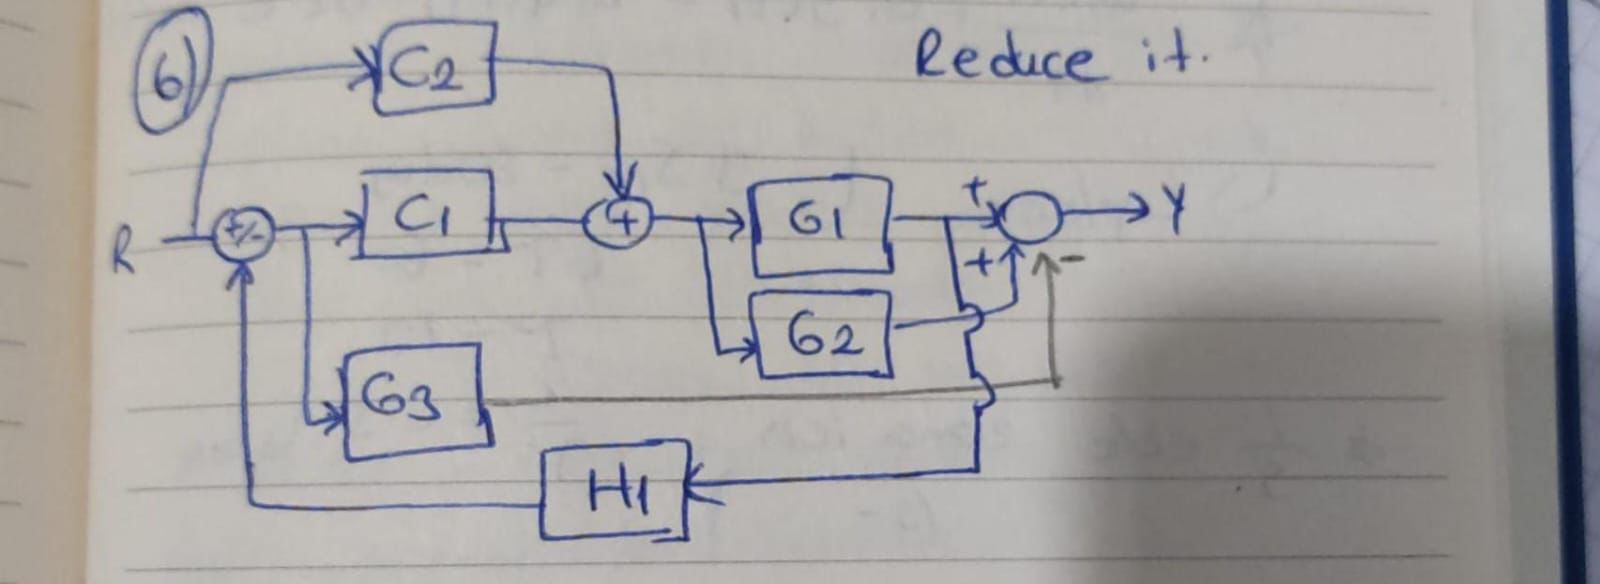 6)
Reduce it.
C2
R
+/-
C1
+
G1
+
Y
+
-
G2
G3
H1